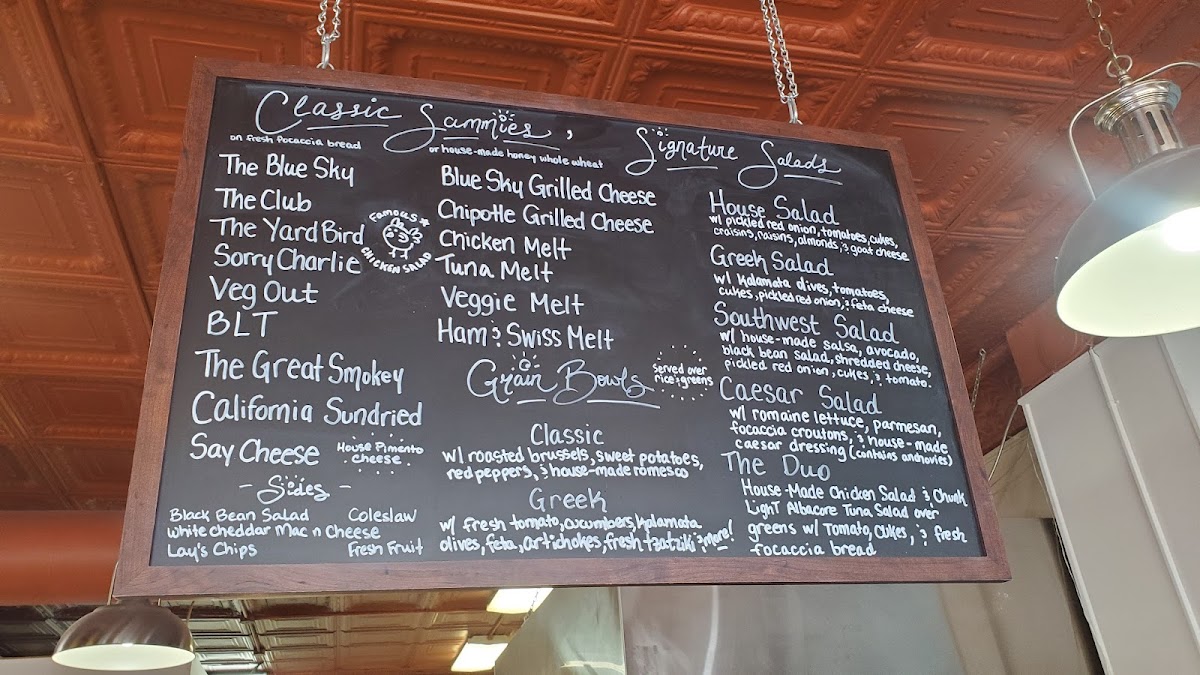 Classic Sammies,
on fresh focaccia bread
or house-made honey whole wheat
The Blue Sky
The Club
The Yard Bird
Famous
Chicken Salad
Sorry Charlie
Veg Out
BLT
The Great Smokey
California Sundried
Say Cheese
House Pimento
cheese
Blue Sky Grilled Cheese
Chipotle Grilled Cheese
Chicken Melt
Tuna Melt
Veggie Melt
Ham & Swiss Melt
- Sides -
Black Bean Salad
Coleslaw
white cheddar Mac n Cheese
Lay's Chips
Fresh Fruit
Grain Bowls
Served over
rice & greens
Classic
w/ roasted brussels, sweet potatoes,
red peppers, & house-made romesco
Greek
w/ fresh tomato, cucumbers, kalamata
olives, feta, artichokes, fresh tzatziki & more!
Signature Salads
House Salad
w/ pickled red onion, tomatoes, cukes,
craisins, raisins, almonds, & goat cheese
Greek Salad
w/ kalamata olives, tomatoes,
cukes, pickled red onion, & feta cheese
Southwest Salad
w/ house-made salsa, avocado,
black bean salad, shredded cheese,
pickled red onion, cukes, & tomato.
Caesar Salad
w/ romaine lettuce, parmesan,
focaccia croutons, & house-made
caesar dressing (contains anchovies)
The Duo
House-Made Chicken Salad & Chunk
Light Albacore Tuna Salad over
greens w/ Tomato, Cukes, & fresh
focaccia bread